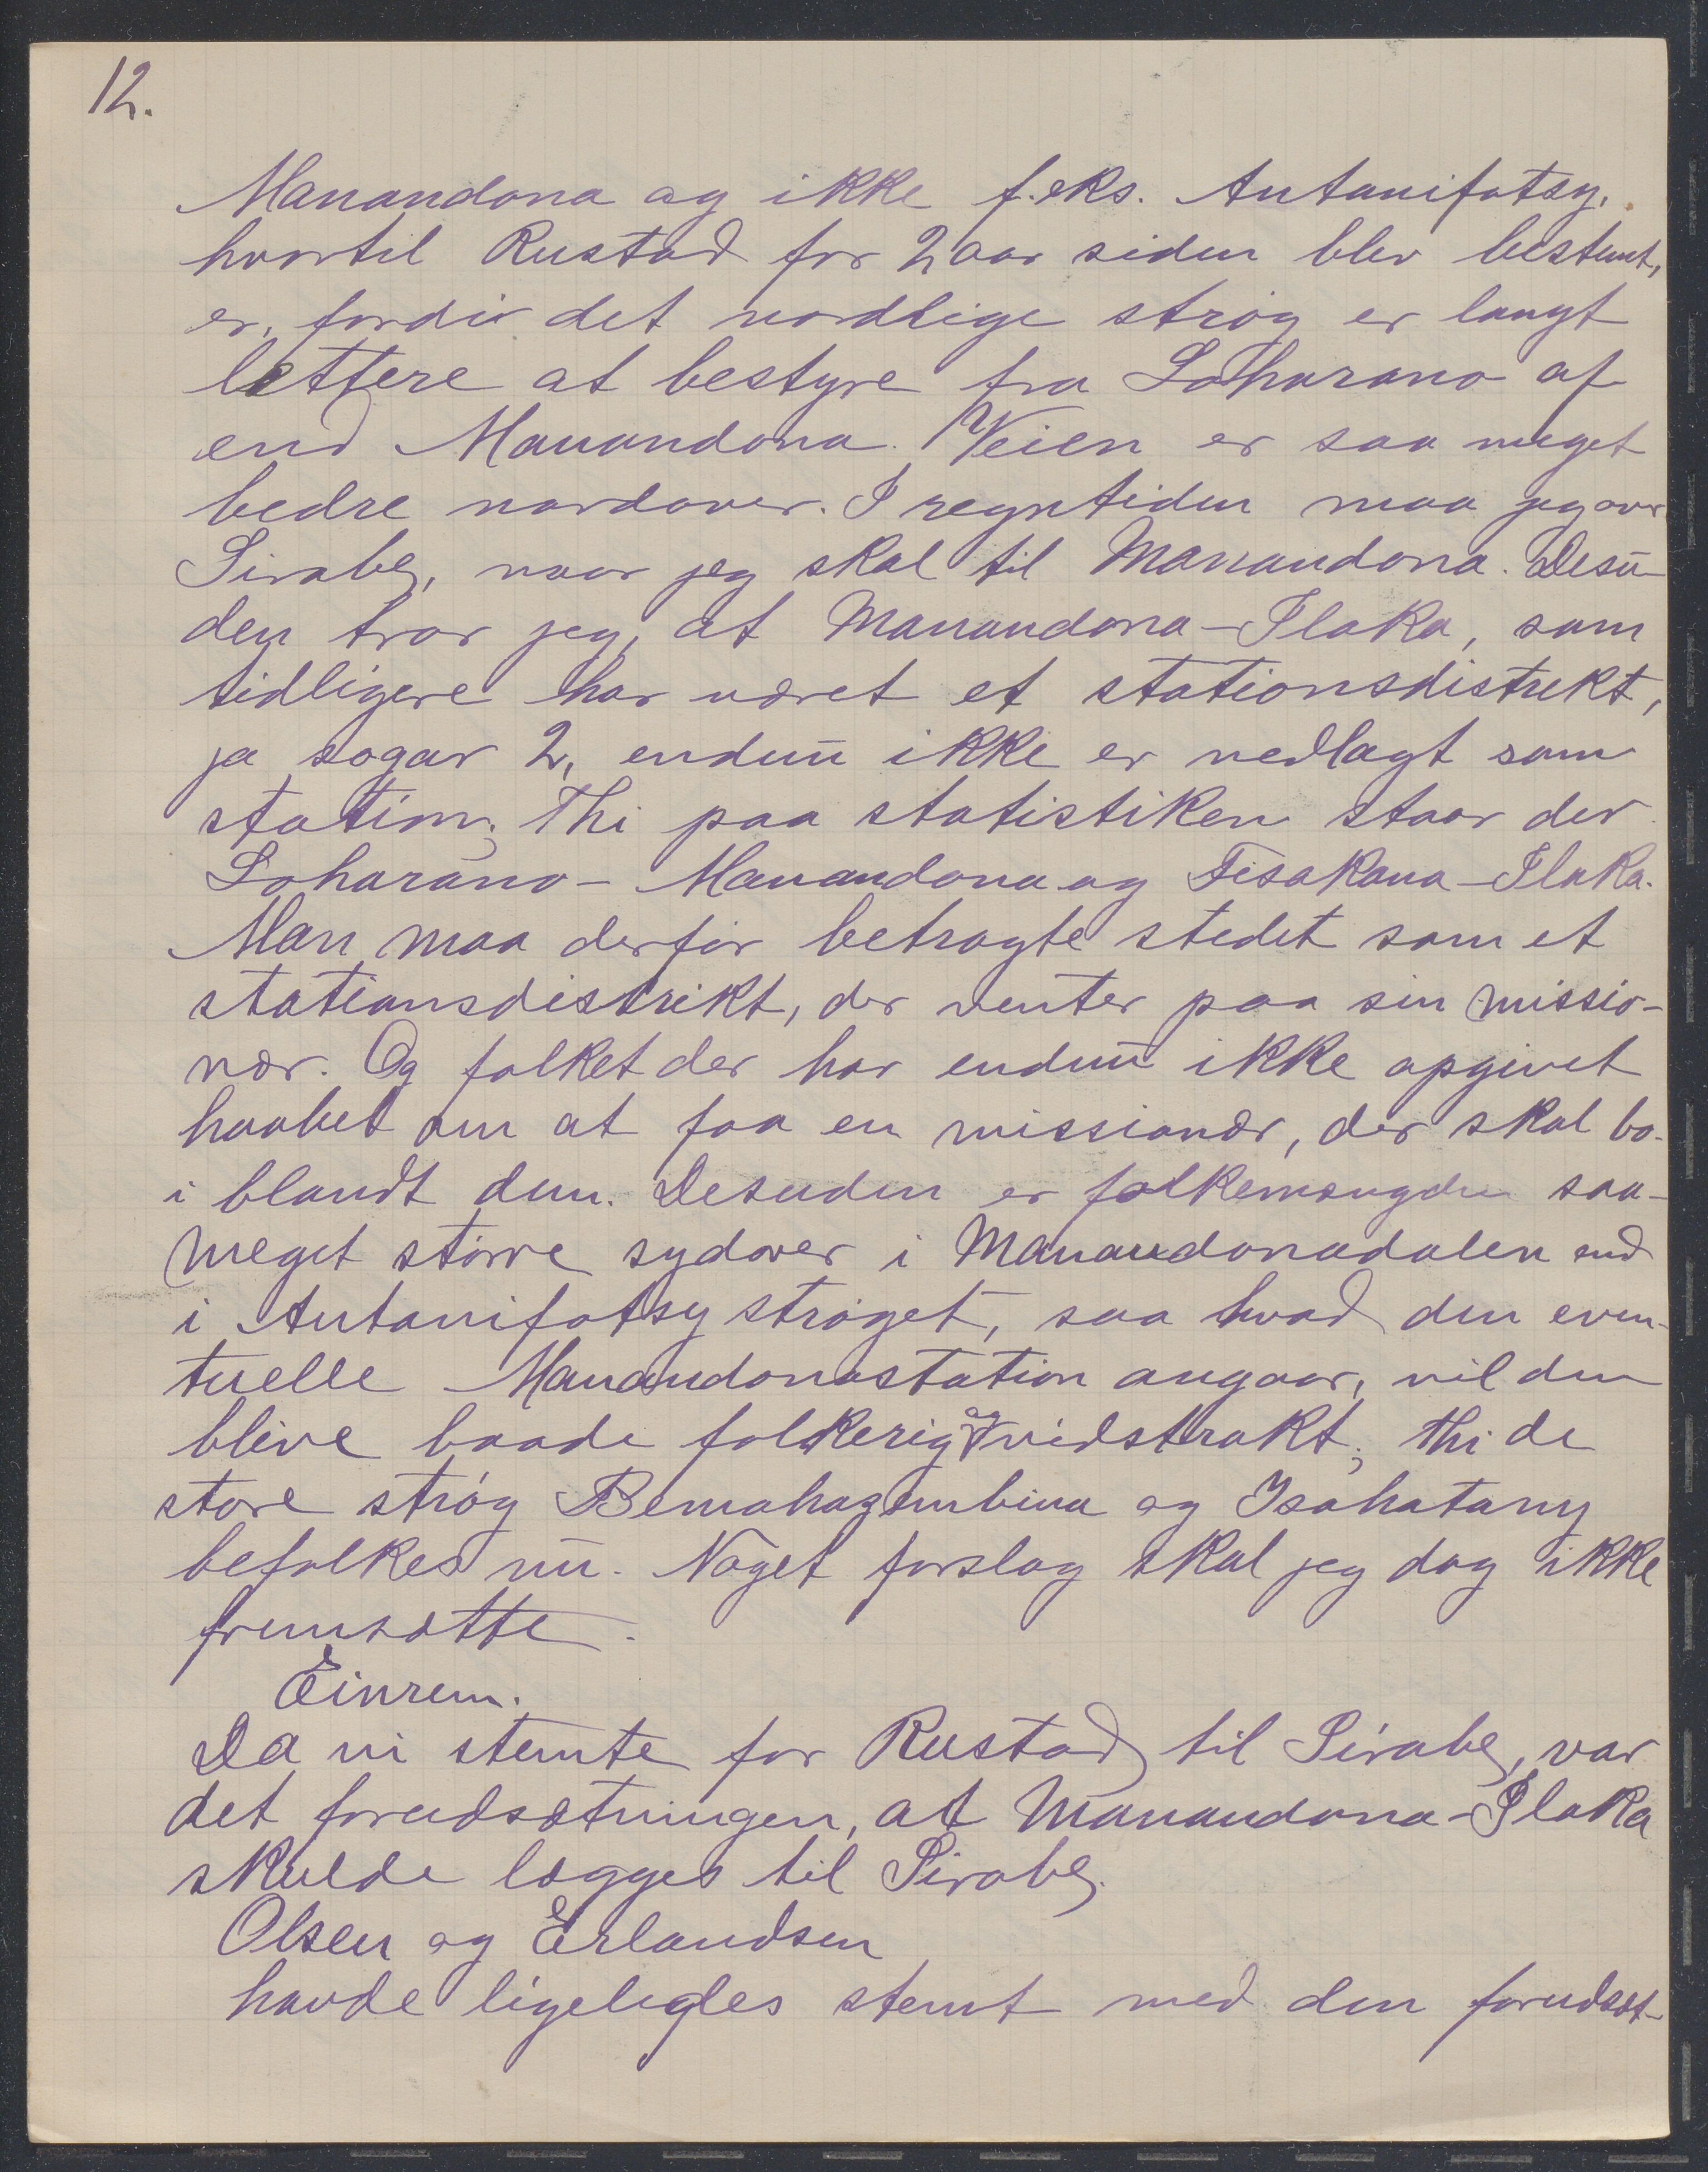 12.
Manandona og ikke f.eks. Antanifotsy,
hvortil Rustad for 2 aar siden blev bestemt,
er, fordi det nordlige strøg er langt
lettere at bestyre fra Loharano af
end Manandona. Veien er saa meget
bedre nordover. I regntiden maa jeg over
Sirabe, naar jeg skal til Manandona. Desu-
den tror jeg, at Manandona-Ilaka, som
tidligere har været et stationsdistrikt,
ja sogar 2, endnu ikke er nedlagt som
station; Thi paa statistiken staar der
Loharano- Manandona og Fisakana-Ilaka.
Man maa derfor betragte stedet som et
stationsdistrikt, der venter paa sin missio-
nær. Og folket der har endnu ikke opgivet
haabet om at faa en missionær, der skal bo
i blandt dem. Desuden er folkemængden saa
meget større sydover i Manandonadalen end
i Antanifotsy strøget, saa hvad den even-
tuelle Manandonastation angaar, vil den
blive baade folkerig og vidstrakt; thi de
store strøg Bemahazembina og Isahatany
befolkes nu. Noget forslag skal jeg dog ikke
fremsætte.
Einrem.
Da vi stemte for Rustad til Sirabe, var
det forudsætningen, at Manandona-Ilaka
skulde lægges til Sirabe.
Olsen og Erlandsen
havde ligeledes stemt med den forudsæt-